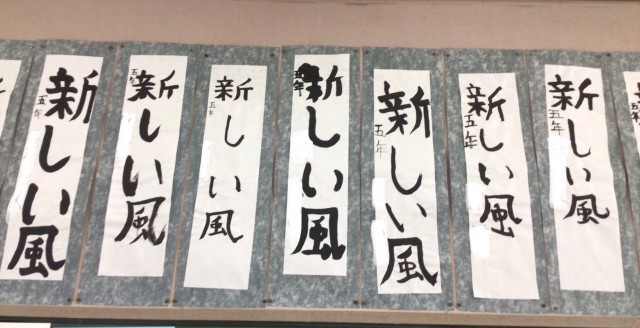 新しい風
五年
新しい風
五年
新しい風
五年
新しい風
五年
新しい風
五年
新しい風
五年
新しい風
五年